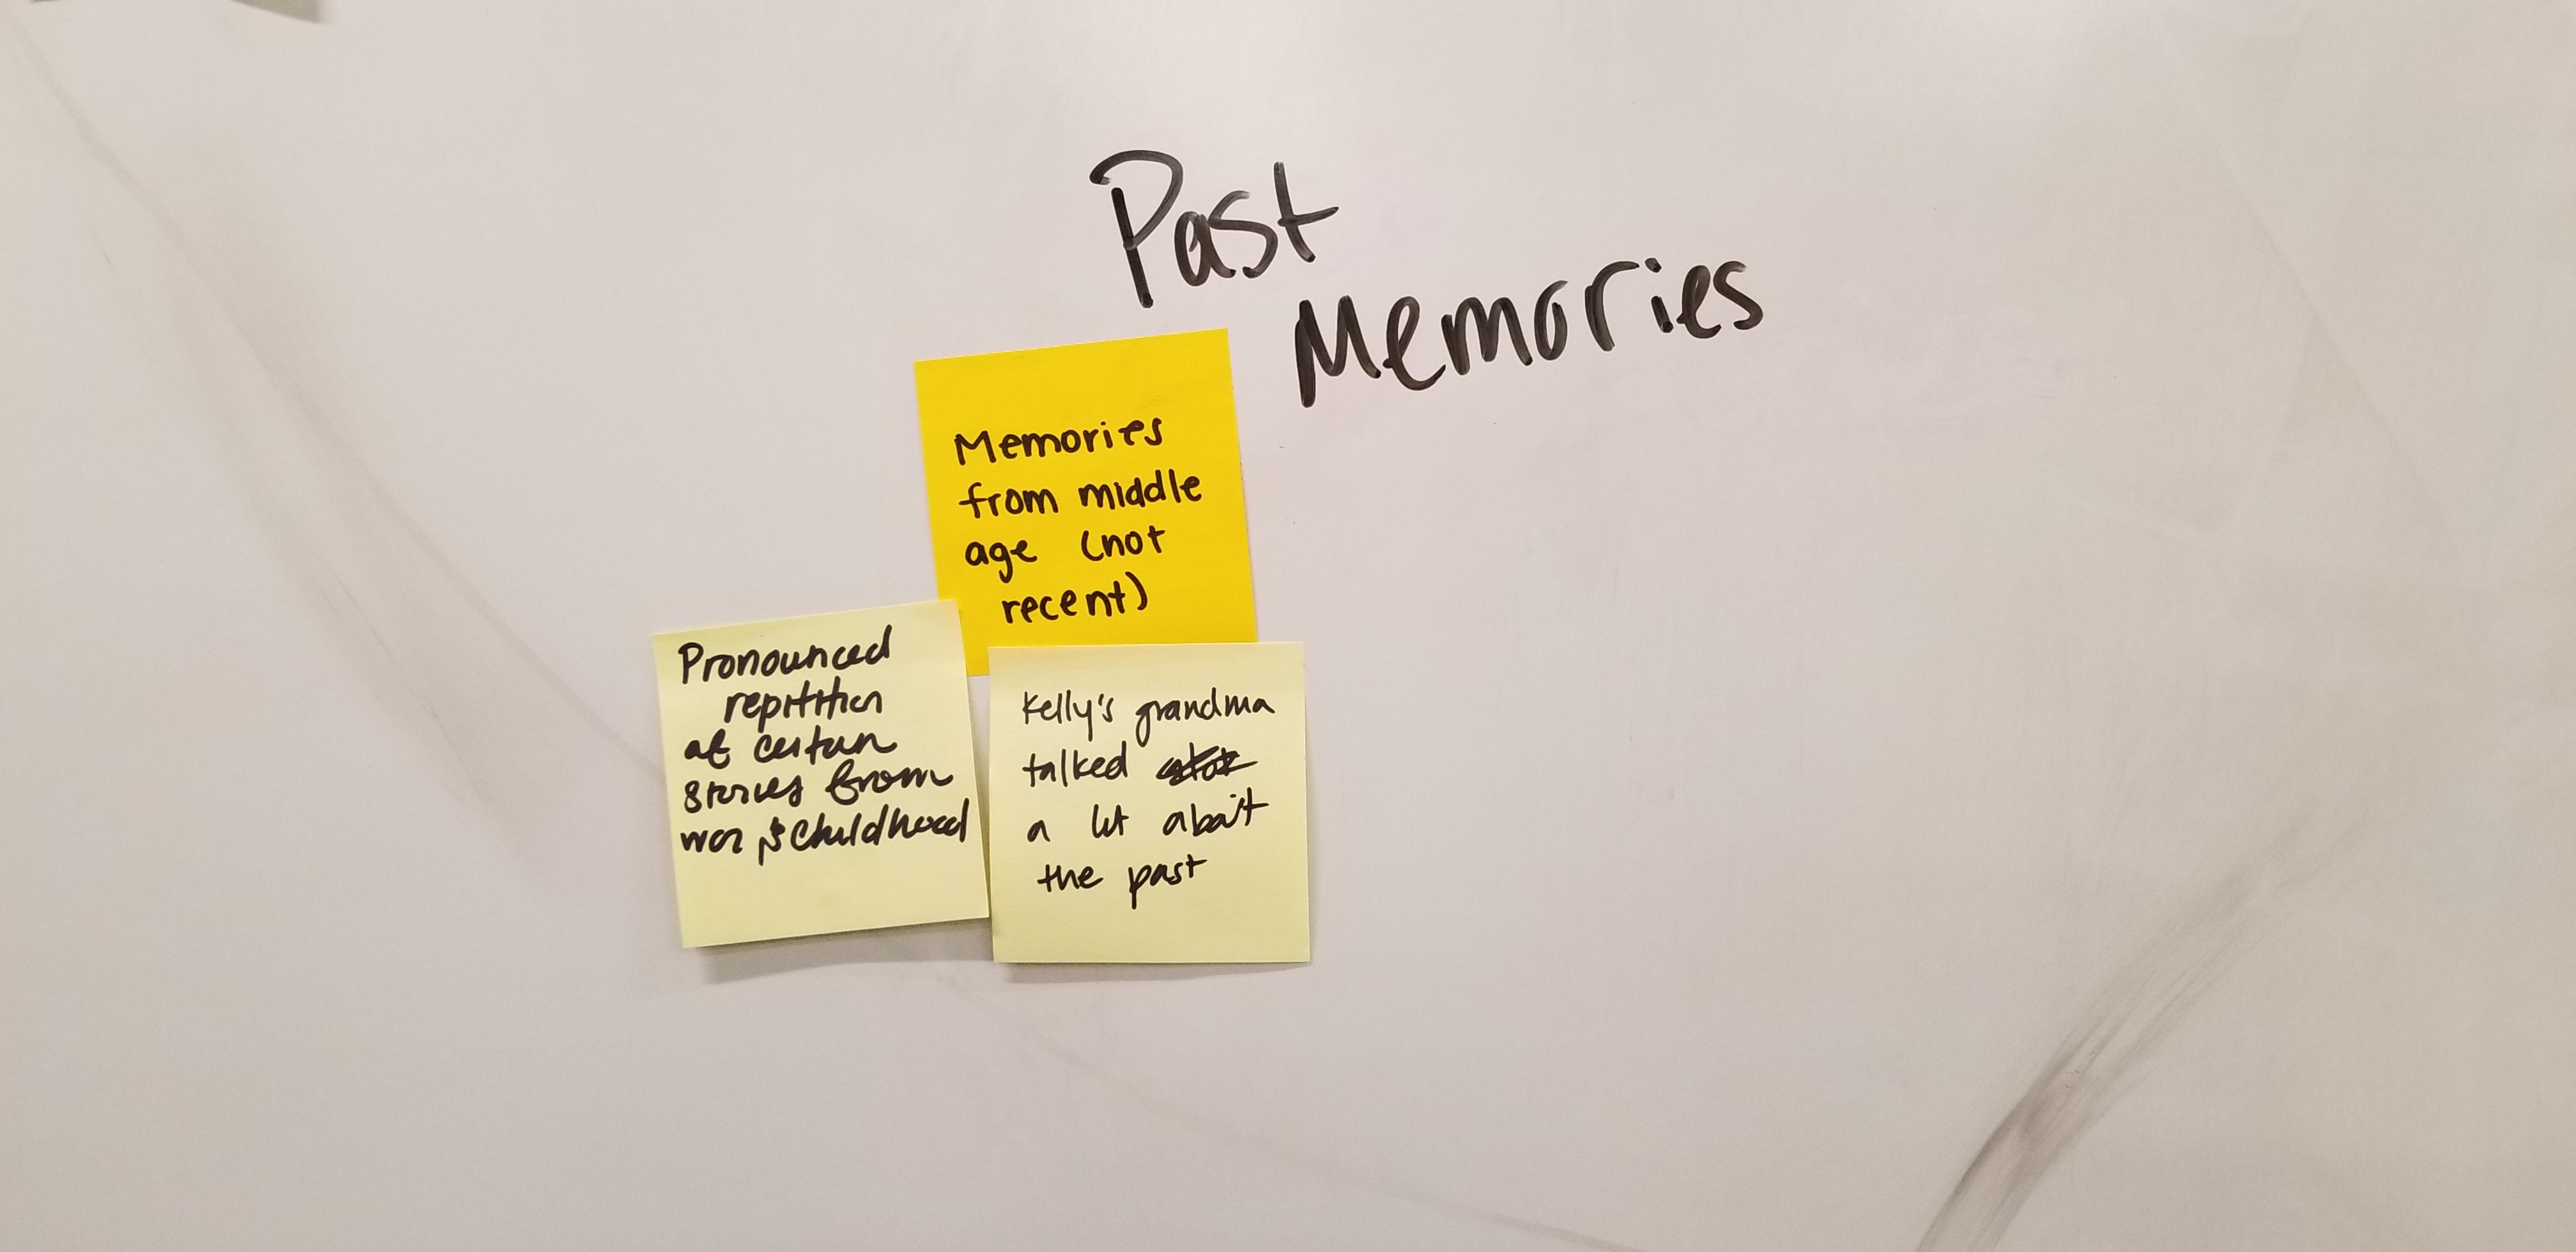 Past
Memories
Memories
from middle
age (not
recent)
Pronounced
repitition
of certain
stories from
war & childhood
Kelly's grandma
talked
a lot about
the past